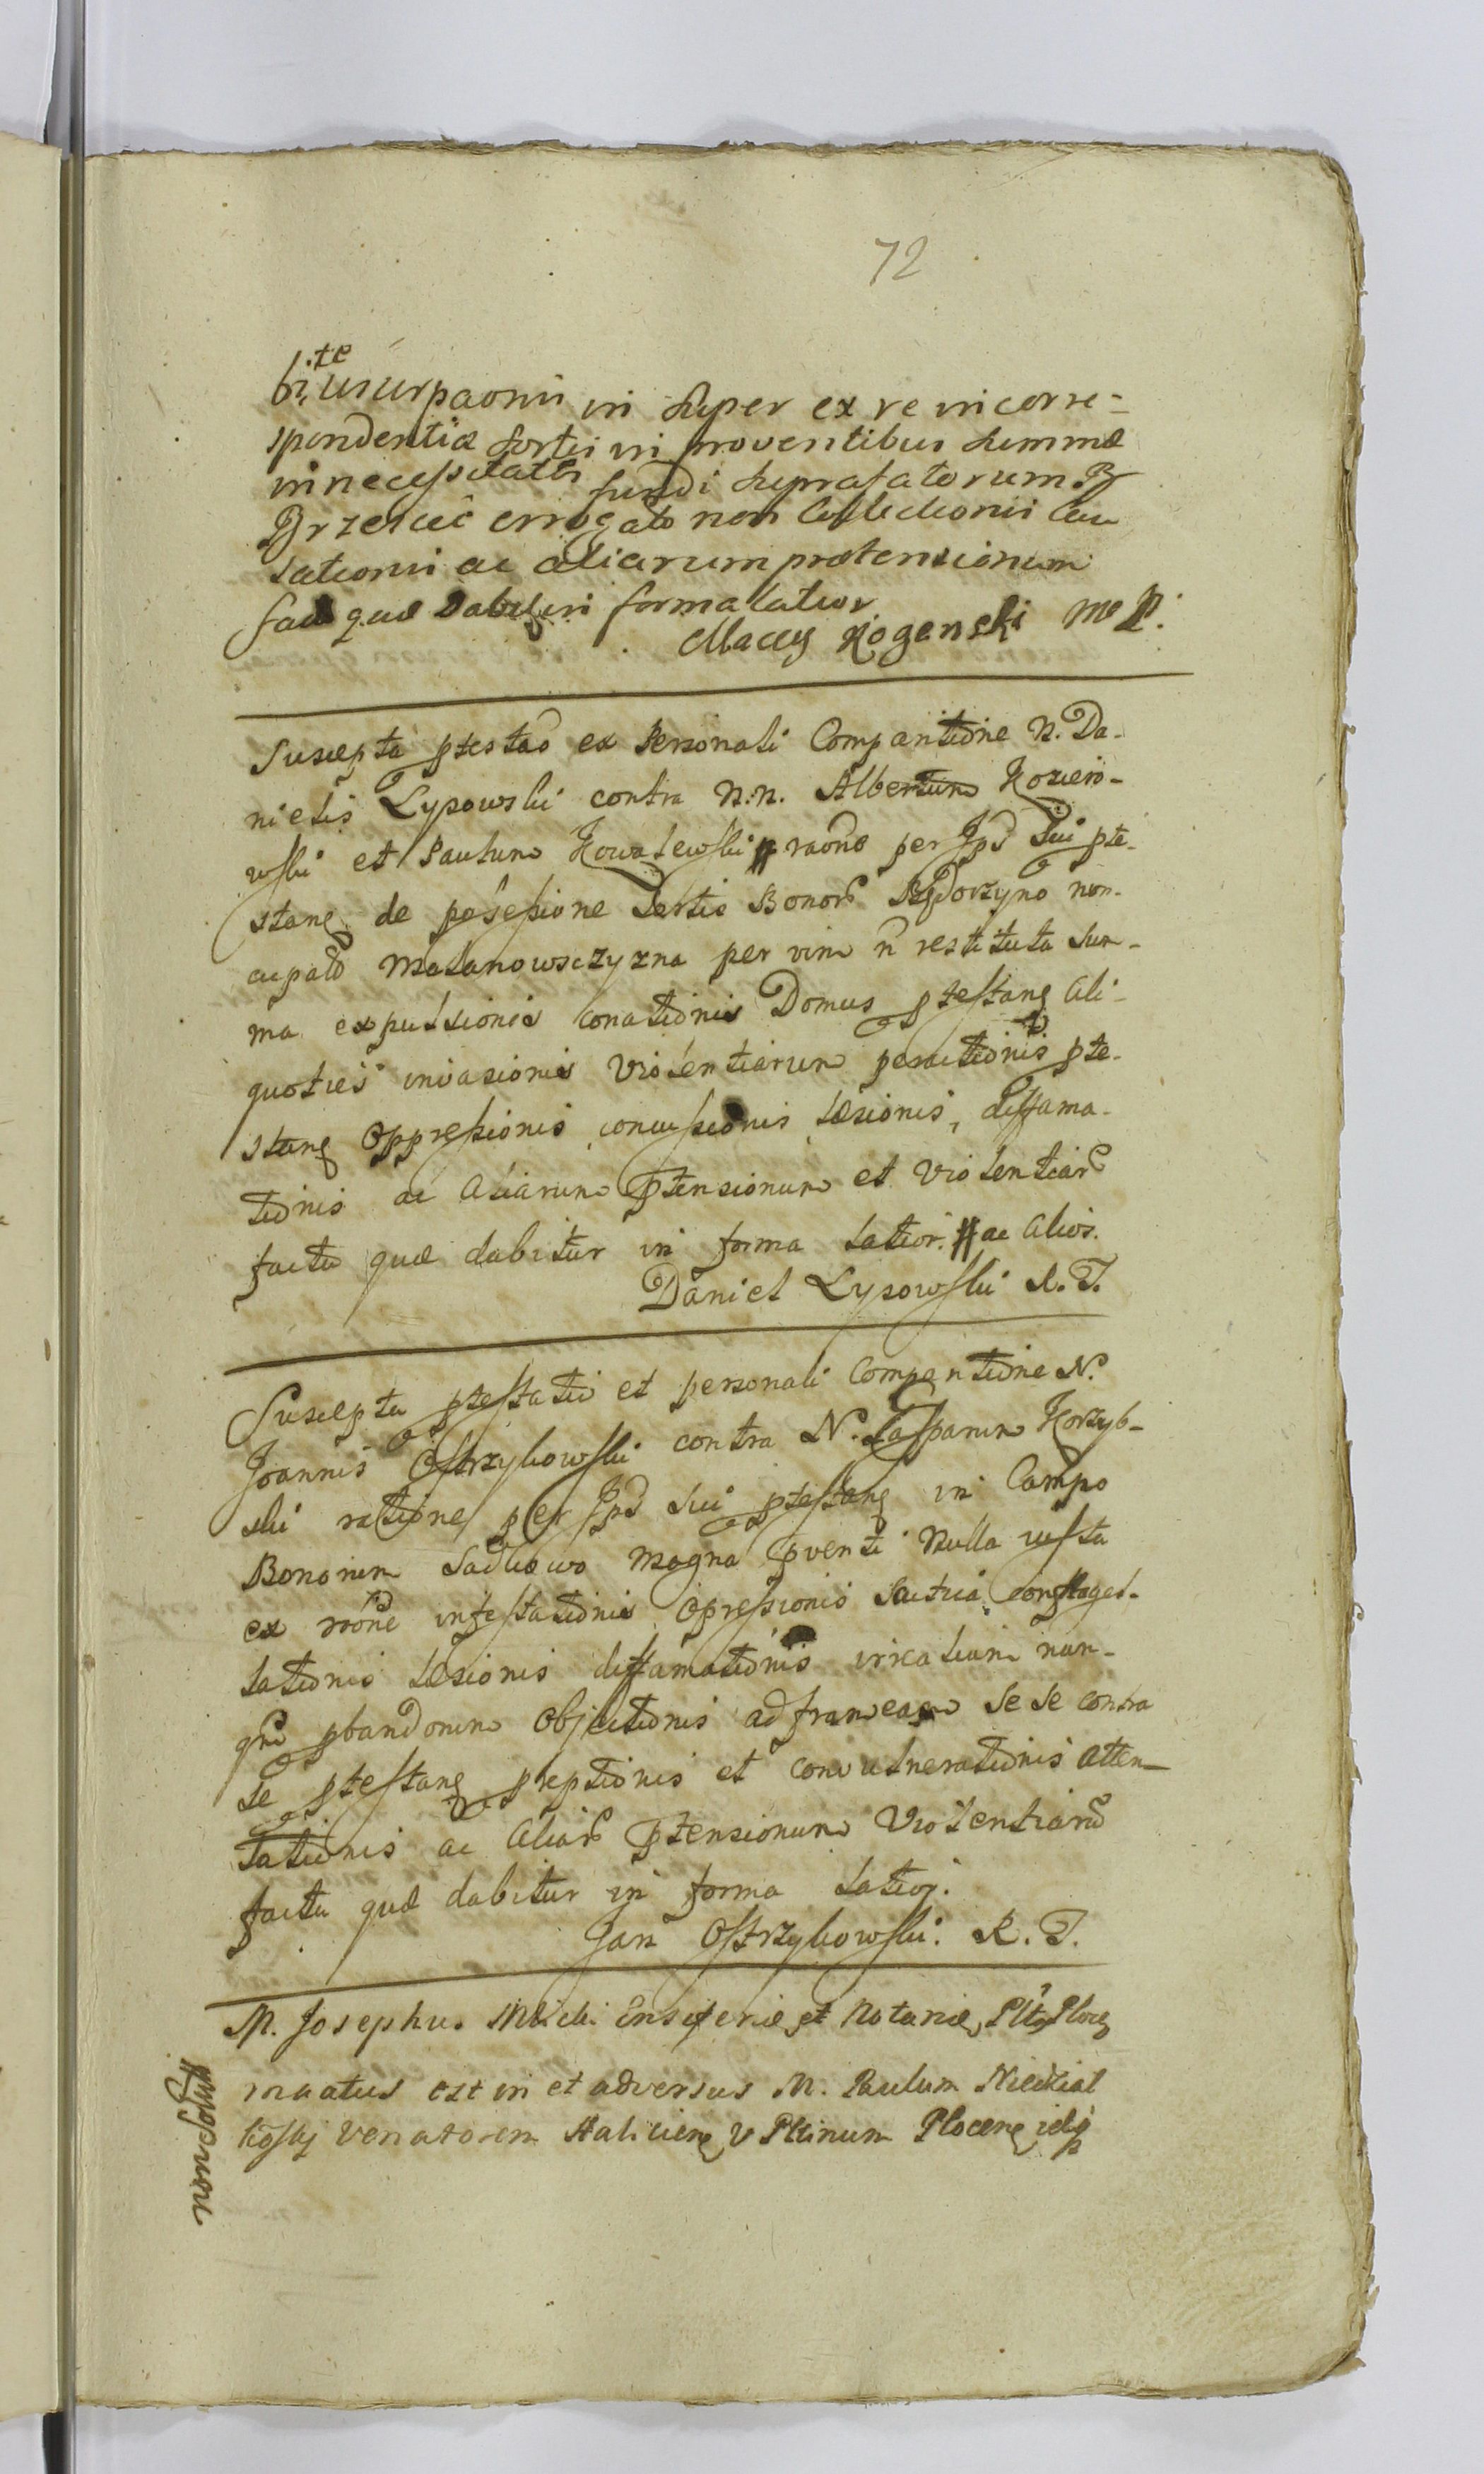 72
usurpaonis in super ex re incorre-
spondentiæ sortis in proventibus summæ
in necessitates fundi suprafatorum B
Brzescic errogato non
sationis ac aliarum prætensionum
quæ dabitur in forma latior
Maciey Rogenski mp.
Suscepta ptestao ex Personali Comparitione N. Da-
nielis Lysowski contra N.N. Albertum Koziero-
wski et Paulum Kowalewski raone per Ipd Sui pte-
stane de possessione Sortis Bonor Rydorzyno nun-
cupato Malanowsczyzna per vim n restituta Sum-
ma expulsionis conationis Domus ptestang Ali-
quoties invasionis Violentiarum peractionis pte-
stang Oppressionis concussionis læsionis, diffama-
tionis ac Aliarum Ptensionum et Violentiar
facta quæ dabitur in forma latior. ac Alios.
Daniel Lysowski R. T.
Suscepta ptestatio et personali Comparitione N.
Joannis Ostrzykowski contra N. Casparum Korzyb-
ski ratione per Ipd Sui ptestang in Campo
Bonorum Sadkowo Magna pventi Nulla iusta
ex raone infestationis Opressionis conflagel-
lationis læsionis diffamationis nun-
qm pbandorum Objectionis ad Se Se contra
se ptestang pleptionis et convulnerationis atten-
tationis ac Aliar Ptensionum Violentiar
facta quæ dabitur in forma latior.
Jan Ostrzykowski. R. T.
M. Josephus Ensiferid et Notarid, Plts Ploceg
mactus est in et adversus M. Paulum Niedzial
kosky Venatorem Halicieng V Pltinum Ploceng
non solvit